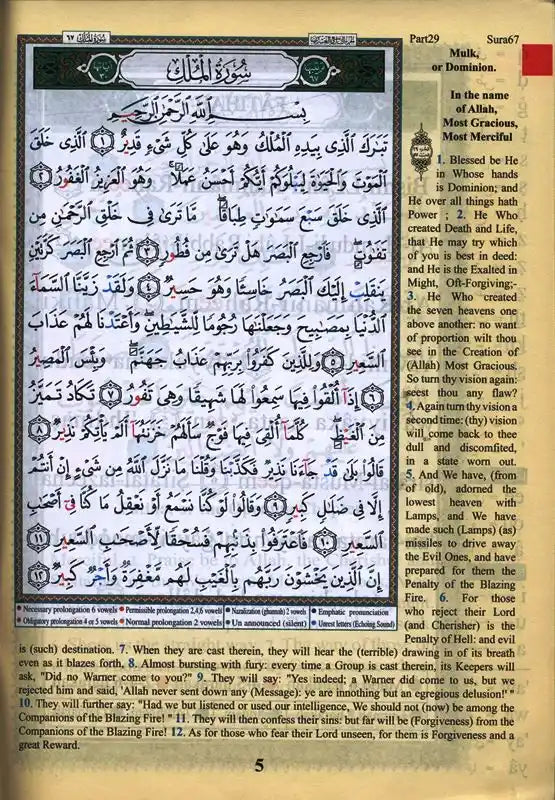 Part29 Sura67
سورة الملك ٦٧
سُورَةُ الْمُلْكِ
بِسْمِ اللَّهِ الرَّحْمَٰنِ الرَّحِيمِ
تَبَٰرَكَ الَّذِى بِيَدِهِ الْمُلْكُ وَهُوَ عَلَىٰ كُلِّ شَىْءٍ قَدِيرٌ ١ الَّذِى خَلَقَ
الْمَوْتَ وَالْحَيَوٰةَ لِيَبْلُوَكُمْ أَيُّكُمْ أَحْسَنُ عَمَلًا ۚ وَهُوَ الْعَزِيزُ الْغَفُورُ ٢
الَّذِى خَلَقَ سَبْعَ سَمَٰوَٰتٍ طِبَاقًا ۖ مَّا تَرَىٰ فِى خَلْقِ الرَّحْمَٰنِ مِن
تَفَٰوُتٍ ۖ فَارْجِعِ الْبَصَرَ هَلْ تَرَىٰ مِن فُطُورٍ ٣ ثُمَّ ارْجِعِ الْبَصَرَ كَرَّتَيْنِ
يَنقَلِبْ إِلَيْكَ الْبَصَرُ خَاسِئًا وَهُوَ حَسِيرٌ ٤ وَلَقَدْ زَيَّنَّا السَّمَآءَ
الدُّنْيَا بِمَصَٰبِيحَ وَجَعَلْنَٰهَا رُجُومًا لِّلشَّيَٰطِينِ ۖ وَأَعْتَدْنَا لَهُمْ عَذَابَ
السَّعِيرِ ٥ وَلِلَّذِينَ كَفَرُوا۟ بِرَبِّهِمْ عَذَابُ جَهَنَّمَ ۖ وَبِئْسَ الْمَصِيرُ
٦ إِذَآ أُلْقُوا۟ فِيهَا سَمِعُوا۟ لَهَا شَهِيقًا وَهِىَ تَفُورُ ٧ تَكَادُ تَمَيَّزُ
مِنَ الْغَيْظِ ۖ كُلَّمَآ أُلْقِىَ فِيهَا فَوْجٌ سَأَلَهُمْ خَزَنَتُهَآ أَلَمْ يَأْتِكُمْ نَذِيرٌ ٨
قَالُوا۟ بَلَىٰ قَدْ جَآءَنَا نَذِيرٌ فَكَذَّبْنَا وَقُلْنَا مَا نَزَّلَ اللَّهُ مِن شَىْءٍ إِنْ أَنتُمْ
إِلَّا فِى ضَلَٰلٍ كَبِيرٍ ٩ وَقَالُوا۟ لَوْ كُنَّا نَسْمَعُ أَوْ نَعْقِلُ مَا كُنَّا فِىٓ أَصْحَٰبِ
السَّعِيرِ ١٠ فَاعْتَرَفُوا۟ بِذَنۢبِهِمْ فَسُحْقًا لِّأَصْحَٰبِ السَّعِيرِ ١١
إِنَّ الَّذِينَ يَخْشَوْنَ رَبَّهُم بِالْغَيْبِ لَهُم مَّغْفِرَةٌ وَأَجْرٌ كَبِيرٌ ١٢
Necessary prolongation 6 vowels Permissible prolongation 2,4,6 vowels Nazalization (ghunnah) 2 vowels Emphatic pronunciation
Obligatory prolongation 4 or 5 vowels Normal prolongation 2 vowels Un announced (silent) Unrest letters (Echoing Sound)
Mulk,
or Dominion.
In the name
of Allah,
Most Gracious,
Most Merciful
1. Blessed be He
in Whose hands
is Dominion; and
He over all things hath
Power ; 2. He Who
created Death and Life,
that He may try which
of you is best in deed:
and He is the Exalted in
Might, Oft-Forgiving;-
3. He Who created
the seven heavens one
above another: no want
of proportion wilt thou
see in the Creation of
(Allah) Most Gracious.
So turn thy vision again:
seest thou any flaw?
4. Again turn thy vision a
second time: (thy) vision
will come back to thee
dull and discomfited,
in a state worn out.
5. And We have, (from
of old), adorned the
lowest heaven with
Lamps, and We have
made such (Lamps) (as)
missiles to drive away
the Evil Ones, and have
prepared for them the
Penalty of the Blazing
Fire. 6. For those
who reject their Lord
(and Cherisher) is the
Penalty of Hell: and evil
is (such) destination. 7. When they are cast therein, they will hear the (terrible) drawing in of its breath
even as it blazes forth, 8. Almost bursting with fury: every time a Group is cast therein, its Keepers will
ask, "Did no Warner come to you?" 9. They will say: "Yes indeed; a Warner did come to us, but we
rejected him and said, 'Allah never sent down any (Message): ye are innothing but an egregious delusion!' "
10. They will further say: "Had we but listened or used our intelligence, We should not (now) be among the
Companions of the Blazing Fire! " 11. They will then confess their sins: but far will be (Forgiveness) from the
Companions of the Blazing Fire! 12. As for those who fear their Lord unseen, for them is Forgiveness and a
great Reward.
5